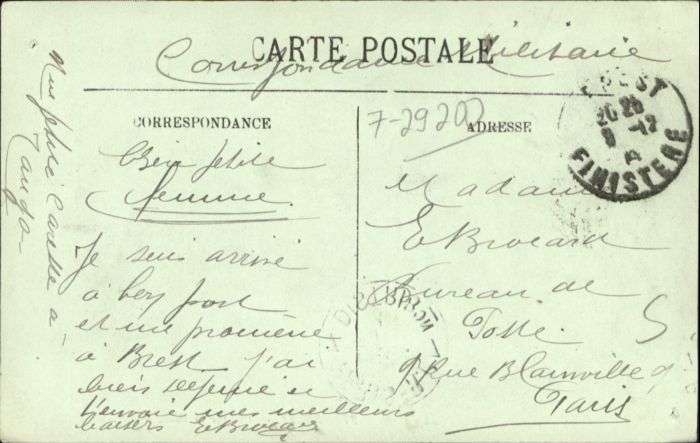 CARTE POSTALE
Correspondance Militaire
CORRESPONDANCE
ADRESSE
7-29200
BREST
20 25
8 -12
FINISTERE
petite
femme
Je suis arrivé
à bon port
et me promène
à Brest j'ai
bien déjeuné et
t'envoie mes meilleurs
baisers EBrocard
Une petite caresse à
Tango
Madame
EBrocard
Bureau de
Poste
9 Rue Blainville 9
Paris
5